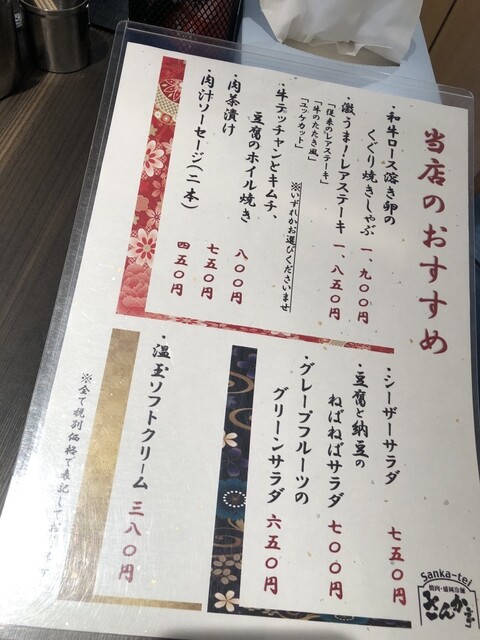 当店のおすすめ
・和牛ロース溶き卵の
くぐり焼きしゃぶ 一、九〇〇円
・激うま！レアステーキ 一、八五〇円
「従来のレアステーキ」
「牛のたたき風」
「ユッケカット」
※いずれかお選びくださいませ
・牛テッチャンとキムチ、
豆腐のホイル焼き 八〇〇円
・肉茶漬け 七五〇円
・肉汁ソーセージ(二本) 四五〇円
・シーザーサラダ 七五〇円
・豆腐と納豆の
ねばねばサラダ 七〇〇円
・グレープフルーツの
グリーンサラダ 六五〇円
・温玉ソフトクリーム 三八〇円
※全て税別価格で表記しております
Sanka-tei
焼肉・盛岡冷麺
さんか亭